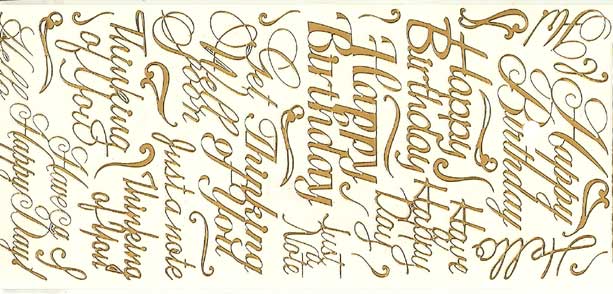 Hello
Thinking
of You
Get
Well
Soon
Happy
Birthday
Happy
Birthday
Hi
Happy
Birthday
Have a
Happy Day!
Thinking
of You
Just a note
Thinking
of You
Just
a
Note
Have
a
Happy
Day
Hello